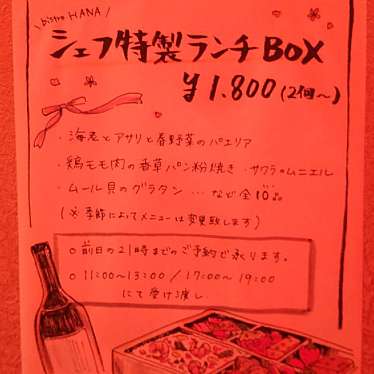 \ bistro HANA /
シェフ特製ランチBOX
¥1.800(2個〜)
・海老とアサリと春野菜のパエリア
・鶏モモ肉の香草パン粉焼き ・サワラのムニエル
・ムール貝のグラタン … など全10品
(※季節によってメニューは変更致します)
○ 前日の21時までのご予約で承ります。
○ 11:00〜13:00 / 17:00〜19:00
にて受け渡し